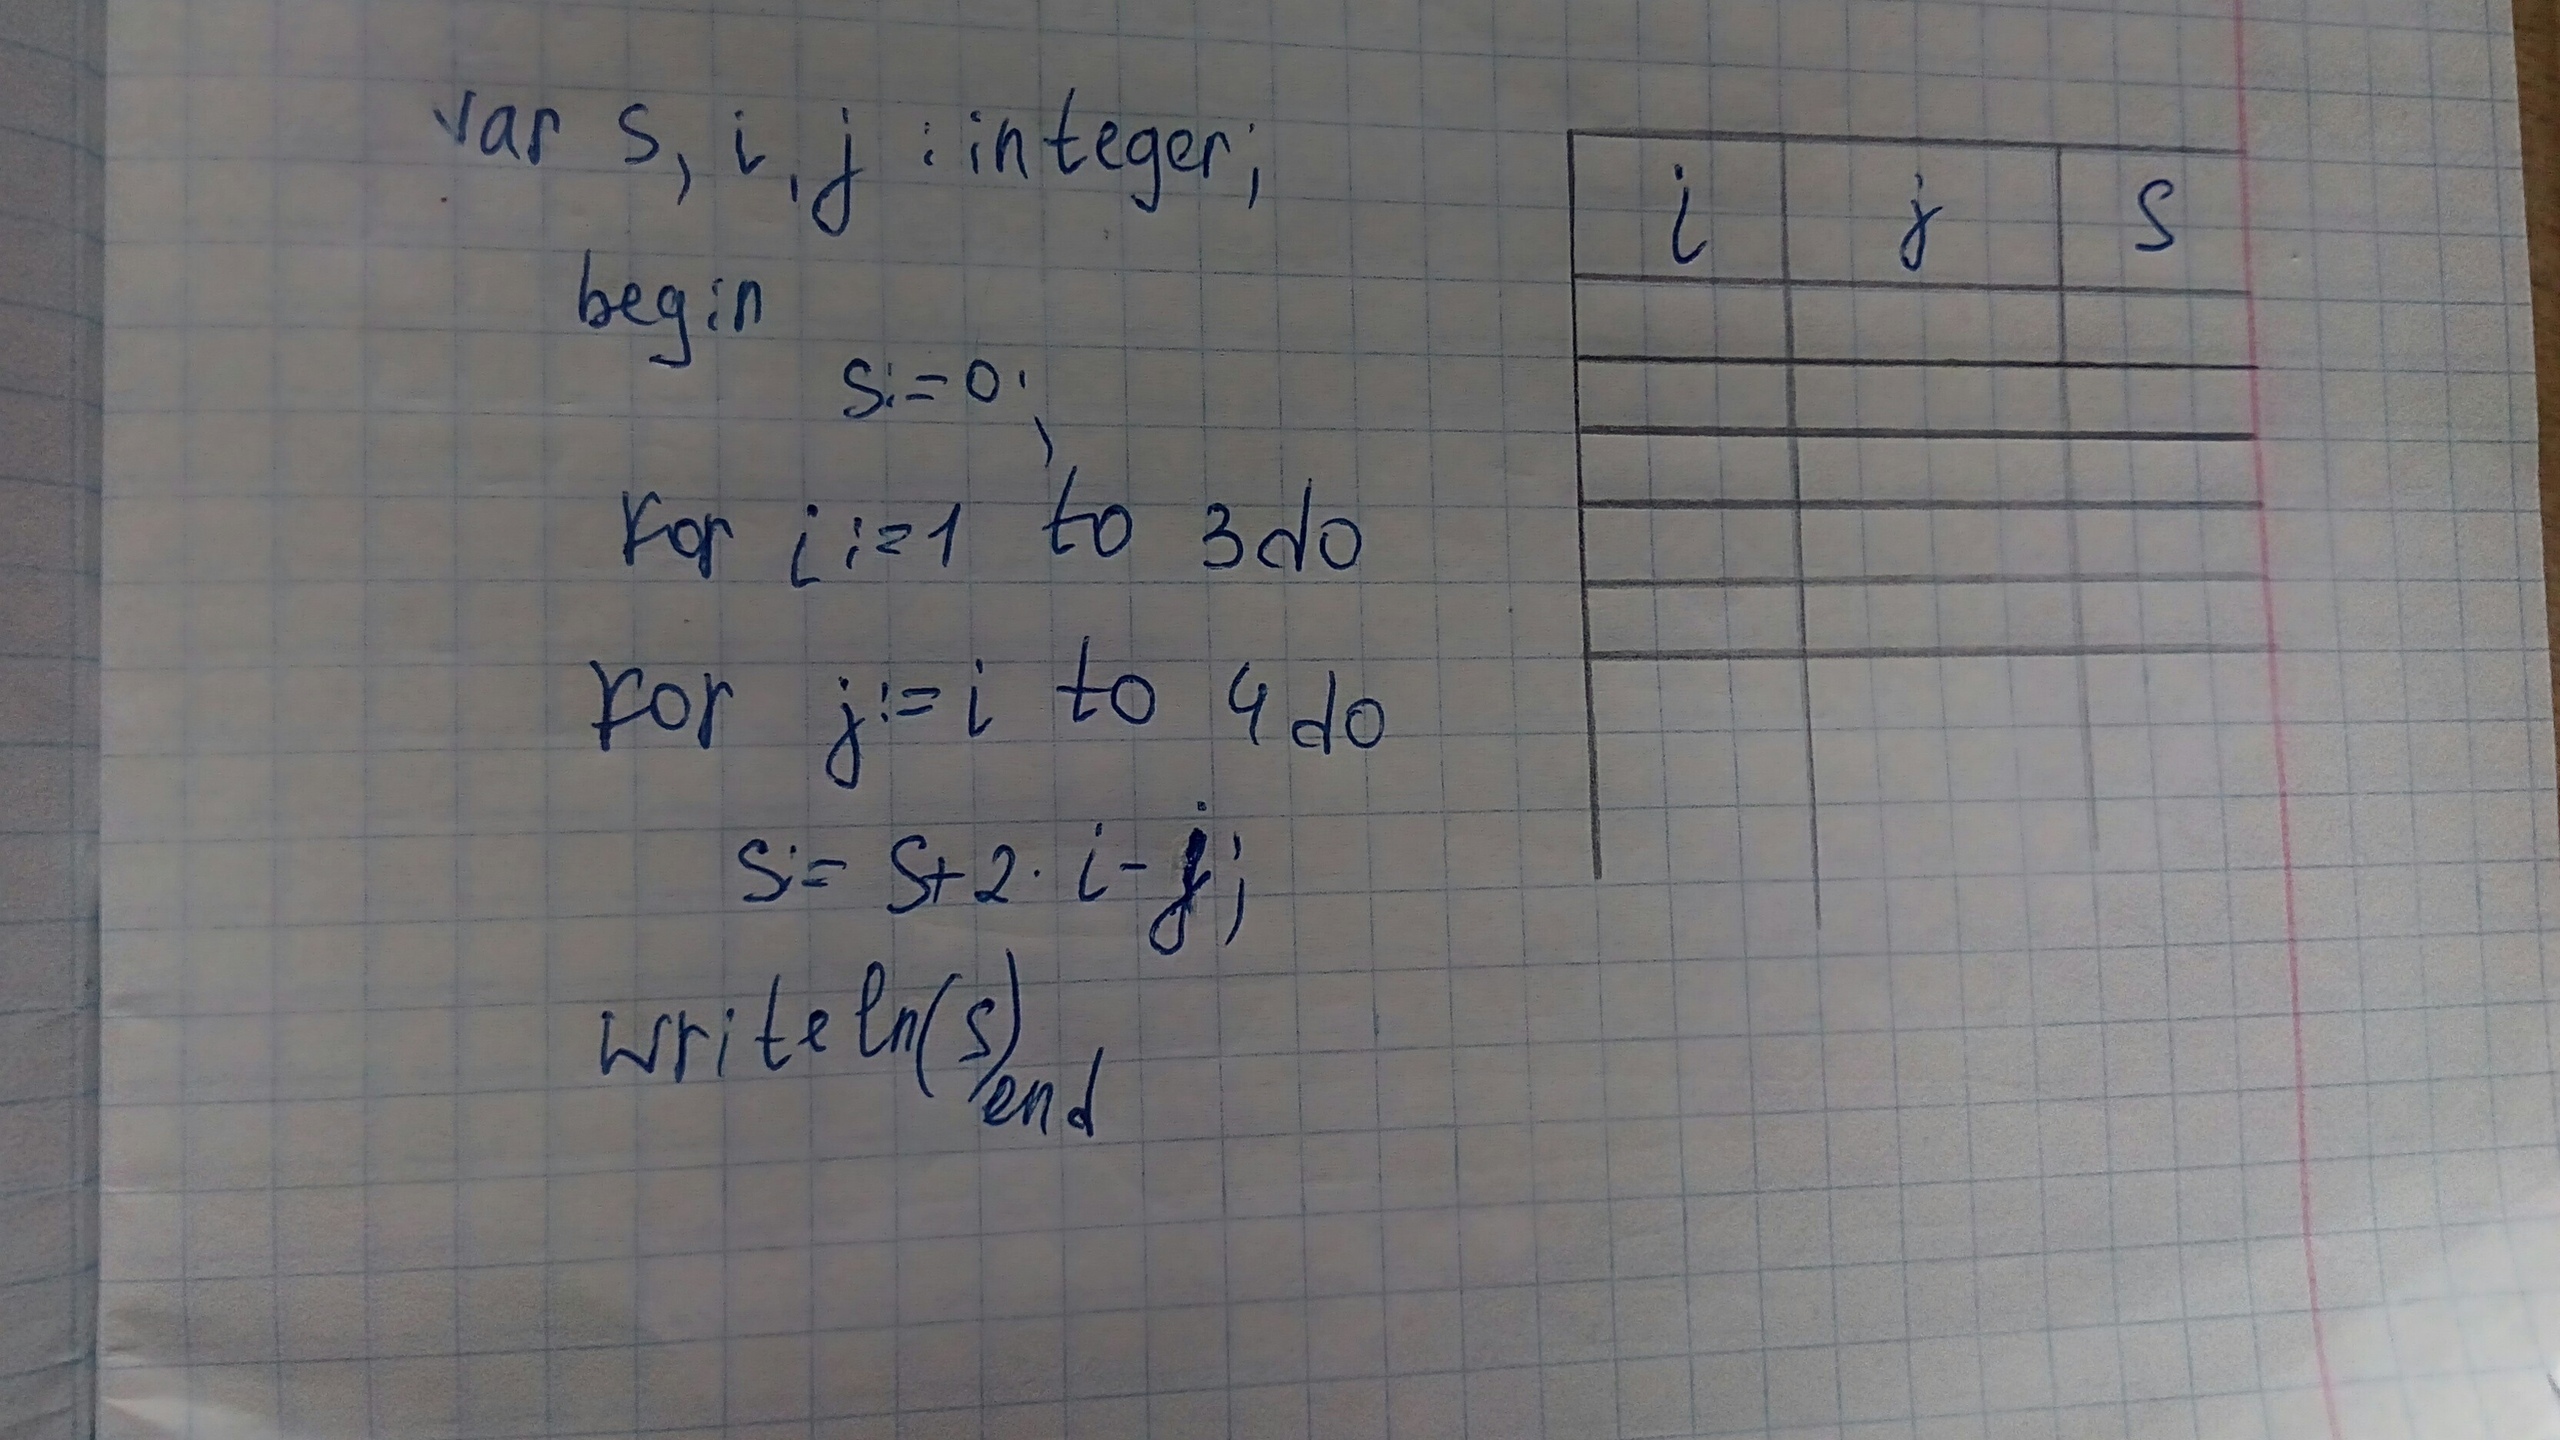 var s, i, j : integer;
begin
s:=0;
for i:=1 to 3 do
for j:=i to 4 do
s:= s+2· i-j;
writeln(s)
end
i j s